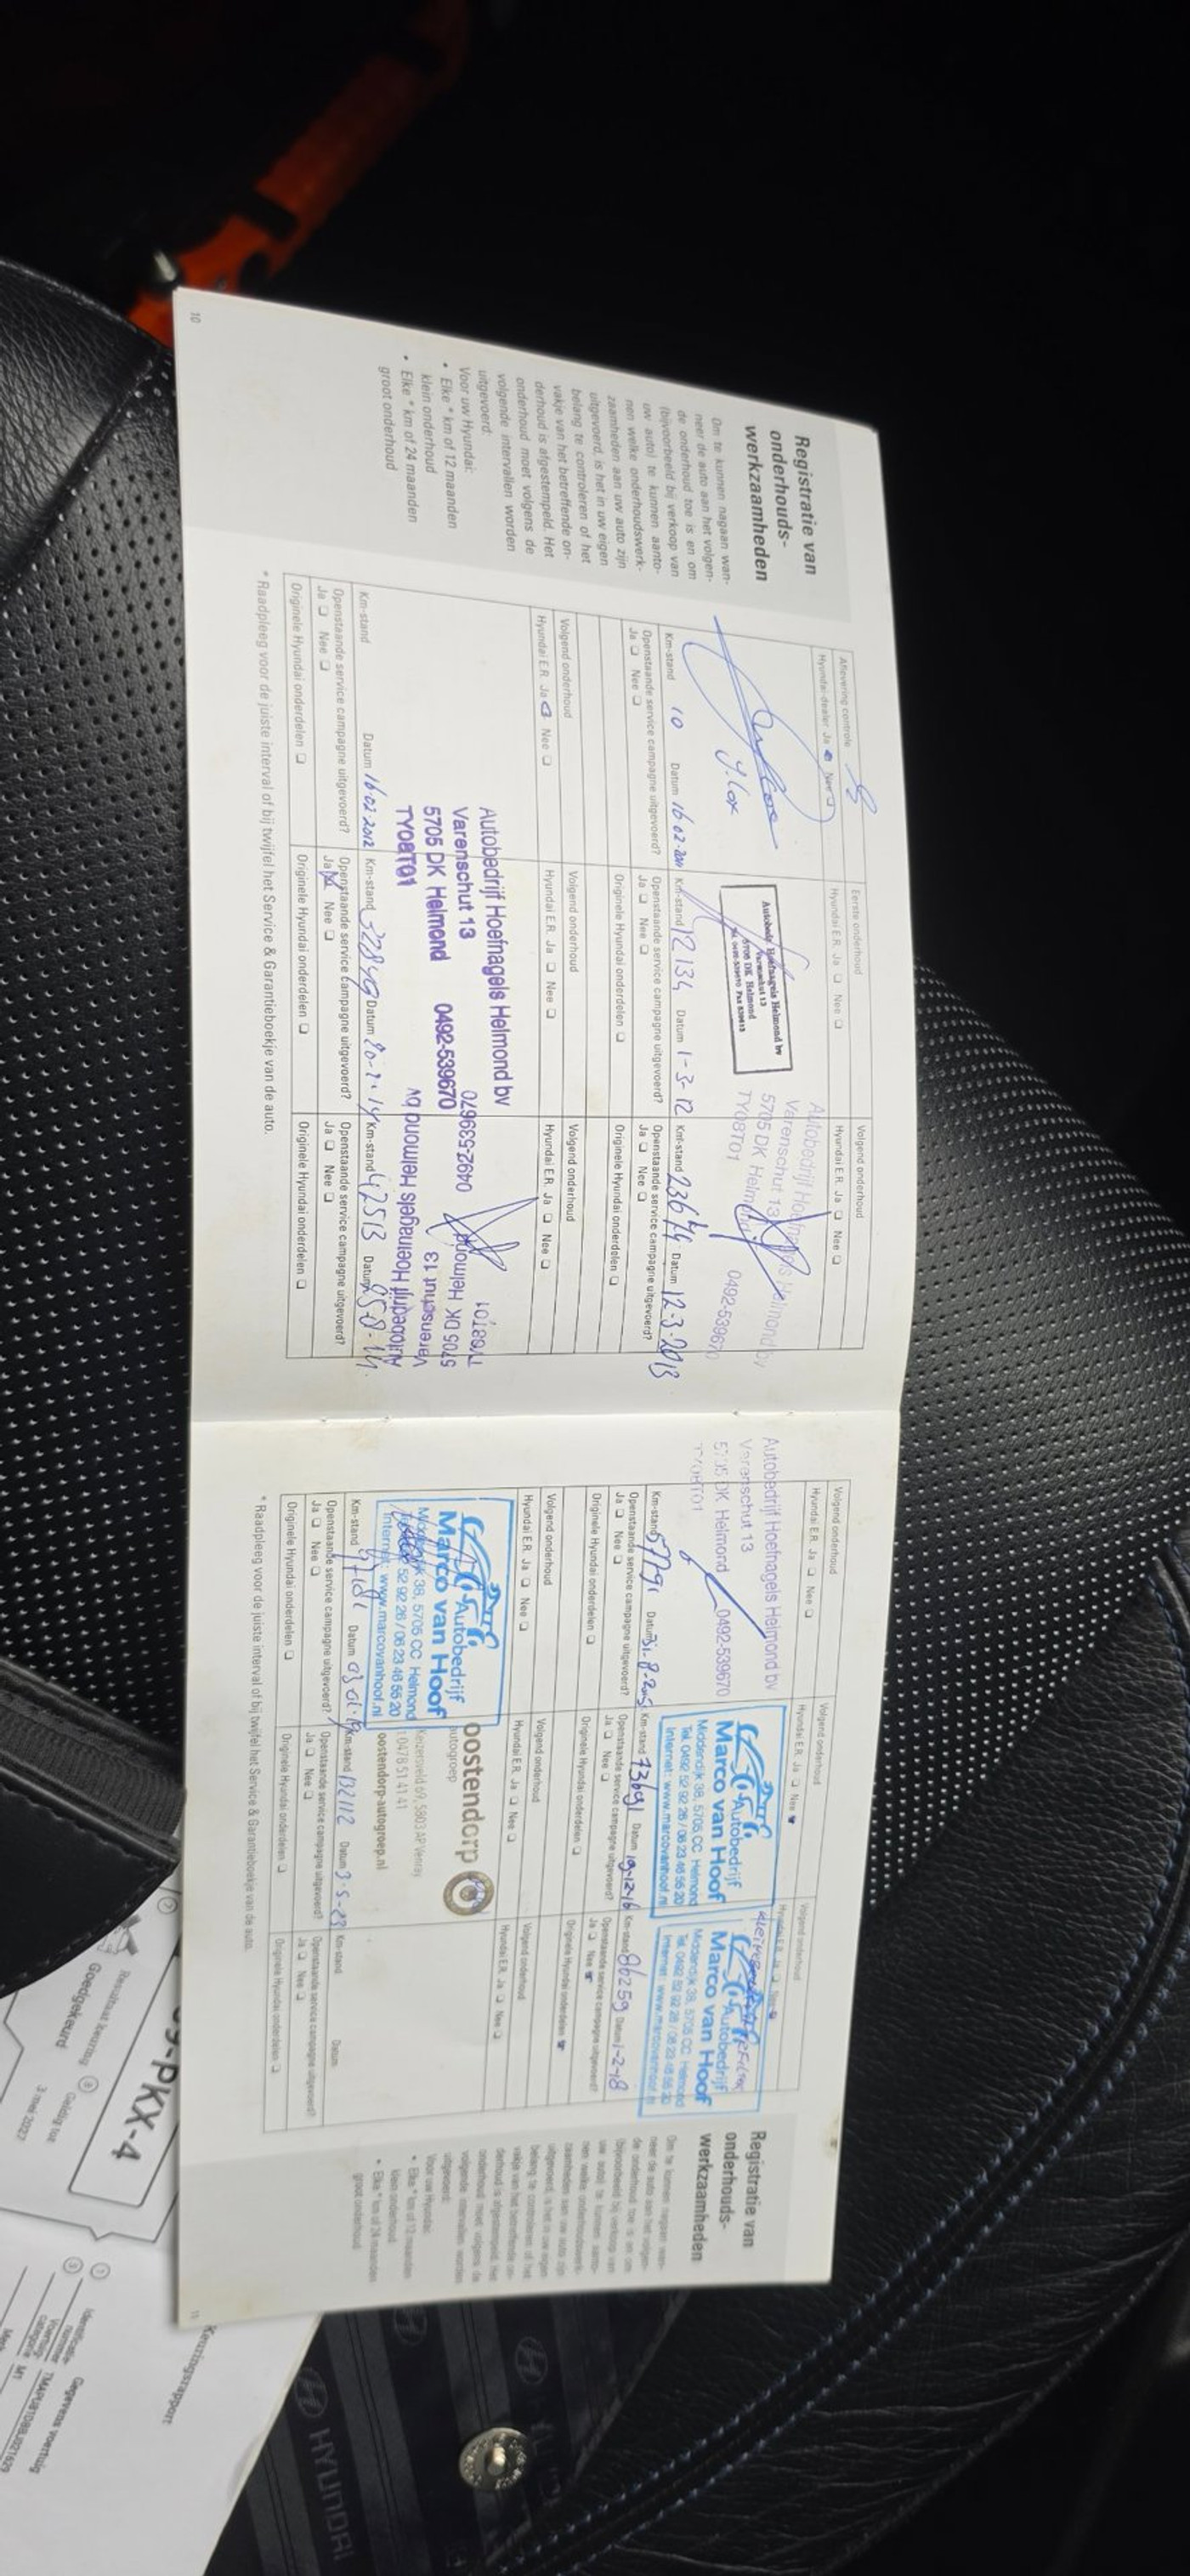 Registratie van
onderhouds-
werkzaamheden
Om te kunnen nagaan wan-
neer de auto aan het volgen-
de onderhoud toe is en om
(bijvoorbeeld bij verkoop van
uw auto) te kunnen aanto-
nen welke onderhoudswerk-
zaamheden aan uw auto zijn
uitgevoerd, is het in uw eigen
belang te controleren of het
vakje van het betreffende on-
derhoud is afgestempeld. Het
onderhoud moet volgens de
volgende intervallen worden
uitgevoerd:
Voor uw Hyundai:
• Elke * km of 12 maanden
klein onderhoud
• Elke * km of 24 maanden
groot onderhoud
10
Aflevering controle
Hyundai-dealer Ja Nee
Y. Cox
Km-stand 10 Datum 16 02 2011
Openstaande service campagne uitgevoerd?
Ja Nee
Eerste onderhoud
Hyundai E.R. Ja Nee
Autobedr. Hoefnagels Helmond bv
Varenschut 13
5705 DK Helmond
Km-stand 12134 Datum 1-3-12
Openstaande service campagne uitgevoerd?
Ja Nee
Originele Hyundai onderdelen
Volgend onderhoud
Hyundai E.R. Ja Nee
Autobedrijf Hoefnagels Helmond bv
Varenschut 13
5705 DK Helmond 0492-539670
TY08T01
Km-stand 23644 Datum 12-3-2013
Openstaande service campagne uitgevoerd?
Ja Nee
Originele Hyundai onderdelen
Volgend onderhoud
Hyundai E.R. Ja Nee
Km-stand Datum 16.02.2012
Openstaande service campagne uitgevoerd?
Ja Nee
Originele Hyundai onderdelen
Volgend onderhoud
Hyundai E.R. Ja Nee
Autobedrijf Hoefnagels Helmond bv
Varenschut 13
5705 DK Helmond 0492-539670
TY08T01
Km-stand 32849 Datum 20-2-14
Openstaande service campagne uitgevoerd?
Ja Nee
Originele Hyundai onderdelen
Volgend onderhoud
Hyundai E.R. Ja Nee
Autobedrijf Hoefnagels Helmond bv
Varenschut 13
5705 DK Helmond 0492-539670
TY08T01
Km-stand 42513 Datum
Openstaande service campagne uitgevoerd?
Ja Nee
Originele Hyundai onderdelen
* Raadpleeg voor de juiste interval of bij twijfel het Service & Garantieboekje van de auto.
Volgend onderhoud
Hyundai E.R. Ja Nee
Autobedrijf Hoefnagels Helmond bv
Varenschut 13
5705 DK Helmond 0492-539670
TY08T01
Km-stand 57791 Datum 31-8-2015
Openstaande service campagne uitgevoerd?
Ja Nee
Originele Hyundai onderdelen
Volgend onderhoud
Hyundai E.R. Ja Nee
Autobedrijf
Marco van Hoof
Middendijk 38, 5705 CC Helmond
Tel. 0492 52 92 26 / 06 23 46 55 20
Internet: www.marcovanhoof.nl
Km-stand 73691 Datum 19-12-16
Openstaande service campagne uitgevoerd?
Ja Nee
Originele Hyundai onderdelen
Volgend onderhoud
Autobedrijf
Marco van Hoof
Middendijk 38, 5705 CC Helmond
Tel. 0492 52 92 26 / 06 23 46 55 20
Internet: www.marcovanhoof.nl
Km-stand 86259 Datum 1-2-18
Openstaande service campagne uitgevoerd?
Ja Nee
Originele Hyundai onderdelen
Volgend onderhoud
Hyundai E.R. Ja Nee
Autobedrijf
Marco van Hoof
Middendijk 38, 5705 CC Helmond
52 92 26 / 06 23 46 55 20
Internet: www.marcovanhoof.nl
Km-stand Datum 03 01.19
Openstaande service campagne uitgevoerd?
Ja Nee
Originele Hyundai onderdelen
Volgend onderhoud
Hyundai E.R. Ja Nee
oostendorp
autogroep
Keizersveld 69, 5803 AP Venray
t 0478 51 41 41
oostendorp-autogroep.nl
Km-stand 132112 Datum 3-5-23
Openstaande service campagne uitgevoerd?
Ja Nee
Originele Hyundai onderdelen
Volgend onderhoud
Hyundai E.R. Ja Nee
Km-stand Datum
Openstaande service campagne uitgevoerd?
Ja Nee
Originele Hyundai onderdelen
* Raadpleeg voor de juiste interval of bij twijfel het Service & Garantieboekje van de auto.
Registratie van
onderhouds-
werkzaamheden
Om te kunnen nagaan wan-
neer de auto aan het volgen-
de onderhoud toe is en om
(bijvoorbeeld bij verkoop van
uw auto) te kunnen aanto-
nen welke onderhoudswerk-
zaamheden aan uw auto zijn
uitgevoerd, is het in uw eigen
belang te controleren of het
vakje van het betreffende on-
derhoud is afgestempeld. Het
onderhoud moet volgens de
volgende intervallen worden
uitgevoerd:
Voor uw Hyundai:
• Elke * km of 12 maanden
klein onderhoud
• Elke * km of 24 maanden
groot onderhoud
Keuringsrapport
-PKX-4
Resultaat keuring
Goedgekeurd
Geldig tot
3 mei 2027
Gegevens voertuig
Identificatie-
nummer
Voertuig-
categorie M1
HYUNDAI